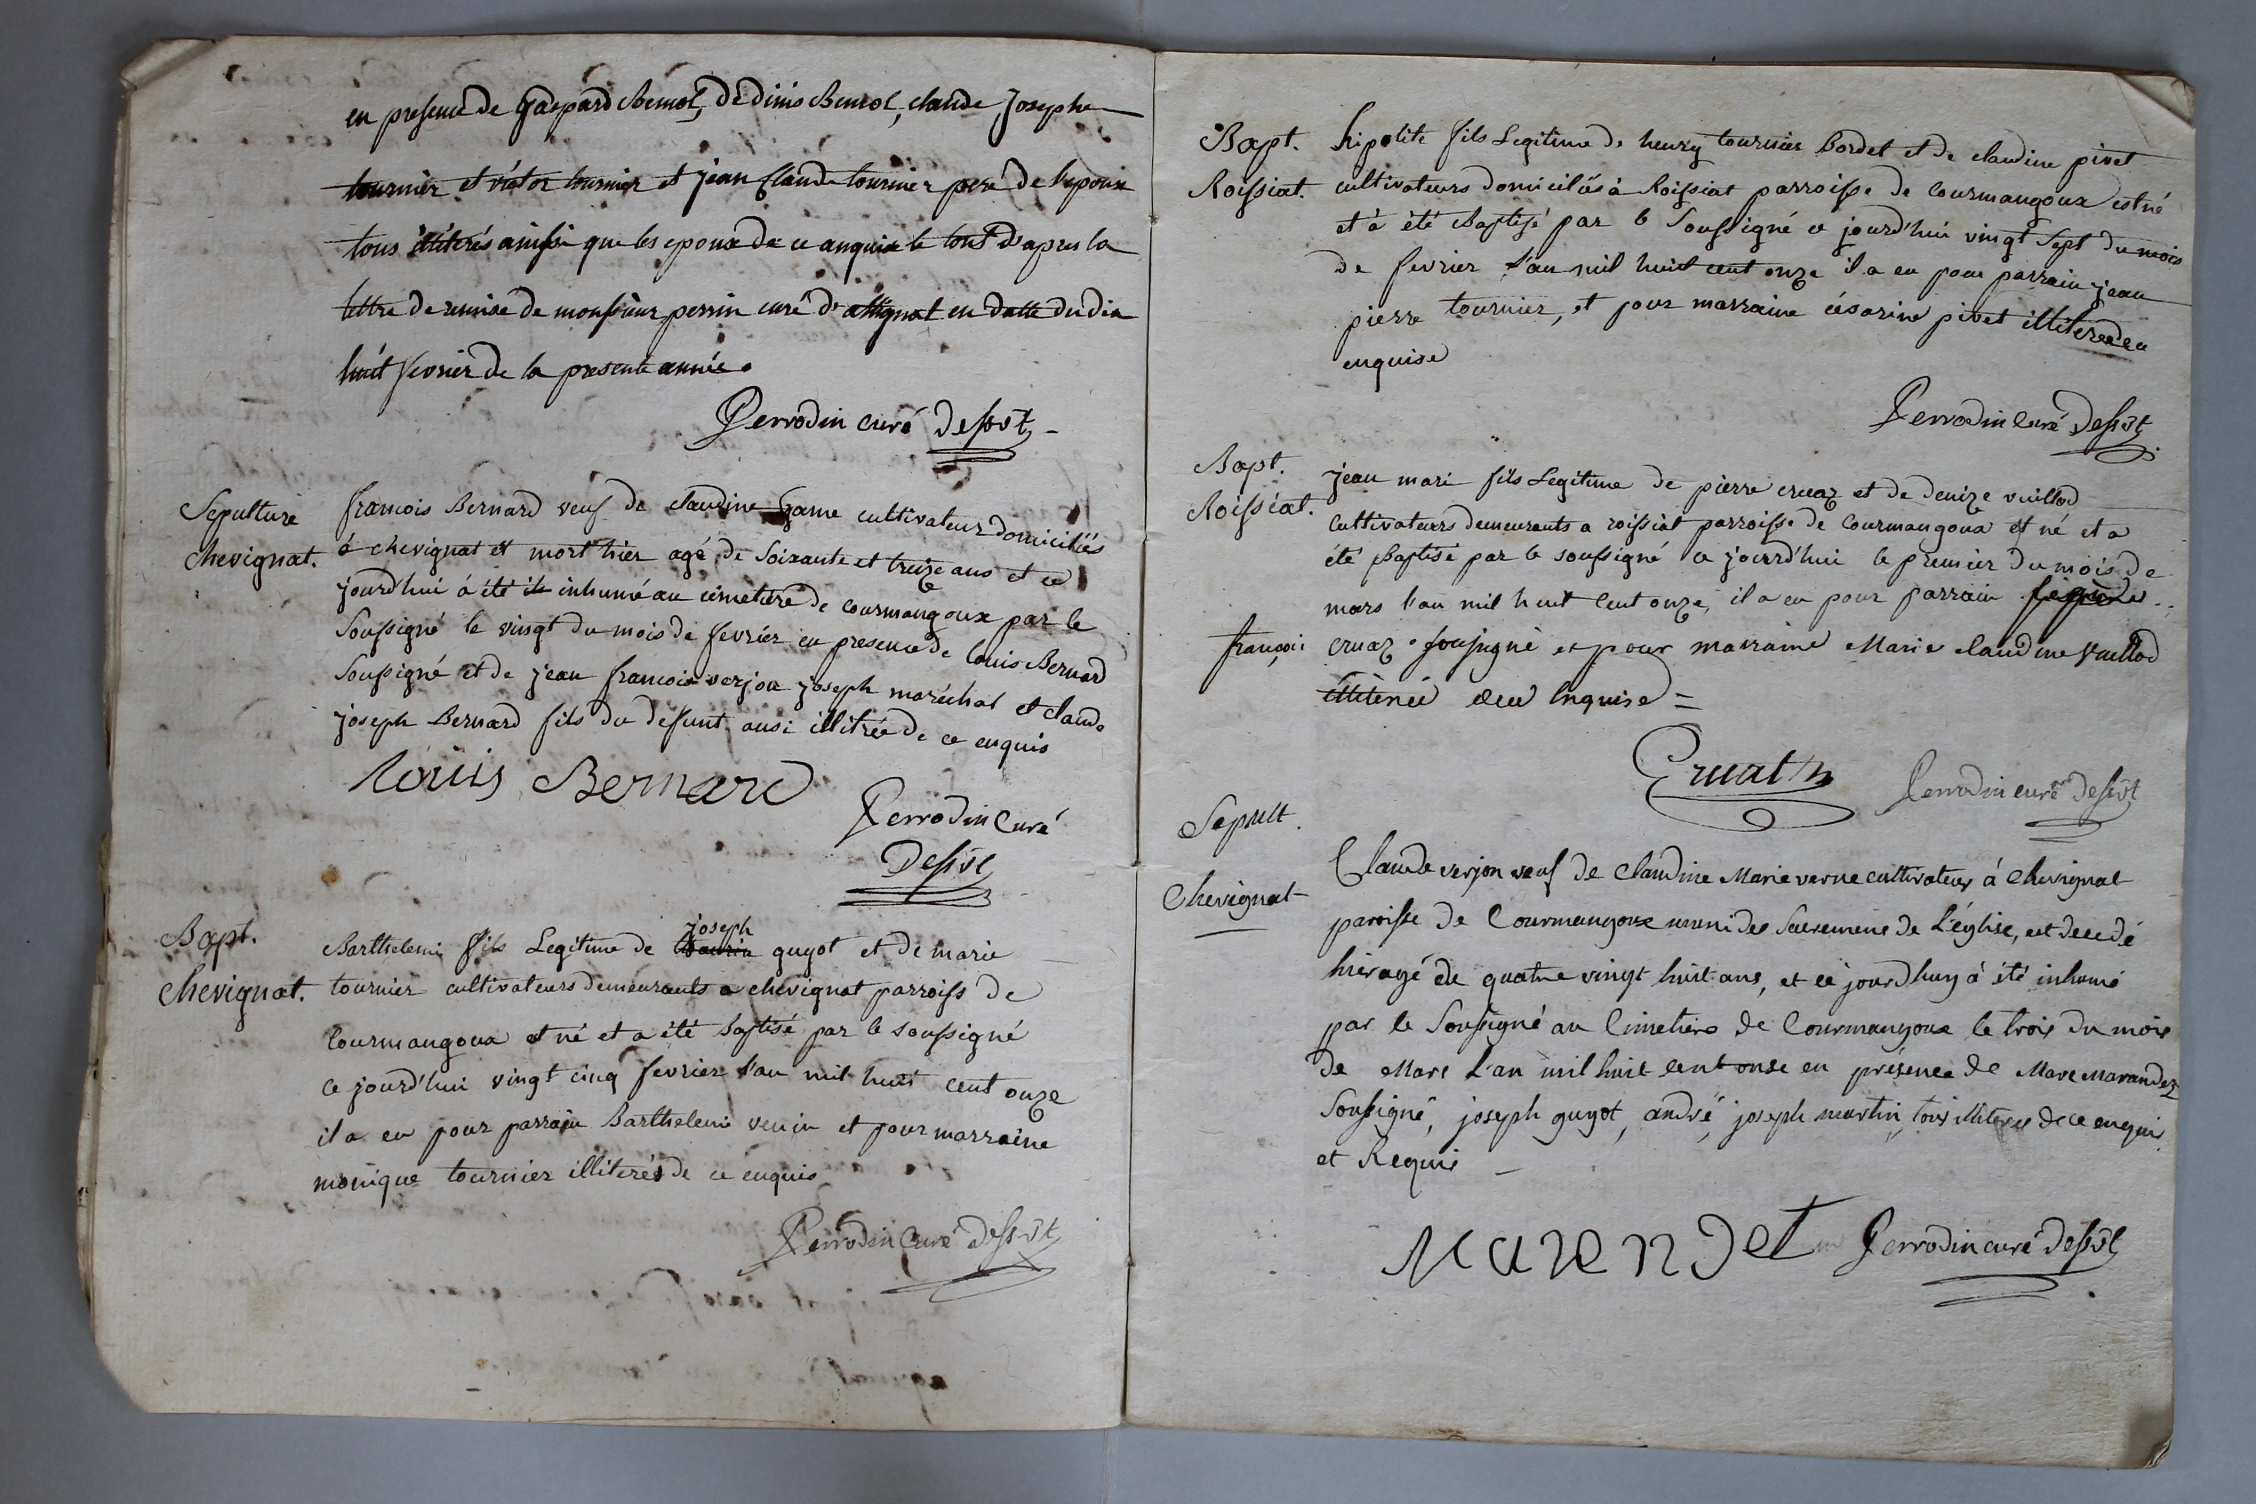 en presence de Gaspard Bernol, de dinis Bernol, claude Josephe
tournier et victor tournier et jean Claude tournier pere de l'epoux
tous illiterés ainssi que les epoux de ce anquise le tout d'apres la
lettre de remise de monssieur perrin curé d'attignat en datte du dix
huit fevrier de la presente année.
Perrodin curé dessvt
Sepulture
Chevignat.
francois Bernard veuf de claudine Game cultivateur domiciliés
à chevignat et mort hier agé de Soixante et treize ans et ce
jourd'hui à été inhumé au cimetiere de courmangoux par le
Soussigné le vingt du mois de fevrier en presence de louis Bernard
Soussigné et de jean francois verjon joseph maréchal et claude
joseph Bernard fils du defunt ausi illitrée de ce enquis
Louis Bernard
Perrodin Curé
dessvt
Bapt.
Chevignat.
joseph
Barthelemi fils Legitime de guyot et de marie
tournier cultivateurs demeurants a chevignat parroiss de
Courmangoux et né et a été baptisé par le soussigné
ce jourd'hui vingt cinq fevrier l'an mil huit cent onze
il a eu pour parrain Barthelemi venin et pour marraine
monique tournier illiterés de ce enquis
Perrodin Curé dessvt
Bapt.
Roissiat.
hipolite fils Legitime de henry tournier Bordet et de claudine pivet
cultivateurs domiciliés à Roissiat parroisse de Courmangoux est né
et à été Baptisé par le Soussigné ce jourd'hui vingt Sept du mois
de fevrier l'an mil huit cent onze il a eu pour parrain jean
pierre tournier, et pour marraine césarine pivet illiterée de ce
enquise
Perrodin Curé dessvt
Bapt.
Roissiat.
jean mari fils Legitime de pierre cruaz et de denize vuillod
Cultivateurs demeurants a roissiat parroisse de Courmangoux et né et a
été Baptisé par le soussigné ce jourd'hui le premier du mois de
mars l'an mil huit Cent onze, il a eu pour parrain
françois cruaz soussigné et pour marraine Marie claudine Vuillod
illiterée de ce Enquise =
Cruat
Perrodin curé dessvt
Sepult.
Chevignat
Claude verjon veuf de Claudine Marie verne cultivateur à Chevignat
paroisse de Courmangoux muni des Sacremens de L'église, est décedé
hier agé de quatre vingt huit ans, et ce jourdhuy à été inhumé
par le Soussigné au Cimetiere de Courmangoux le trois du mois
de Mars L'an mil huit cent onze en présence de Marc Marandez
Soussigné, joseph guyot, andré, joseph martin, tous illiteres de ce enquis
et Requis
Marendet
Perrodin curé dessvt